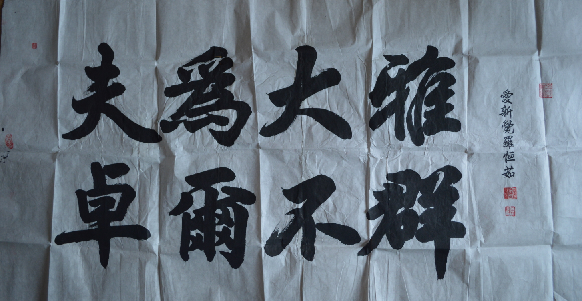 夫為大雅
卓爾不群
愛新覺羅恒茹